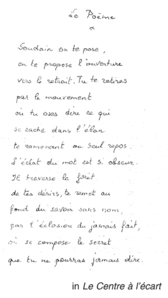 Le Poème
Soudain on te pare,
on te propose l'ouverture
vers le retrait. Tu te retires
par le mouvement
où tu oses dire ce qui
se cache dans l'élan
te ramenant au seul repos.
L'éclat du mot est si obscur.
Il traverse la forêt
de tes désirs, te remet au
fond du savoir sans nom,
par l'éclosion du jamais fait,
où se compose le secret
que tu ne pourras jamais dire.
in Le Centre à l'écart